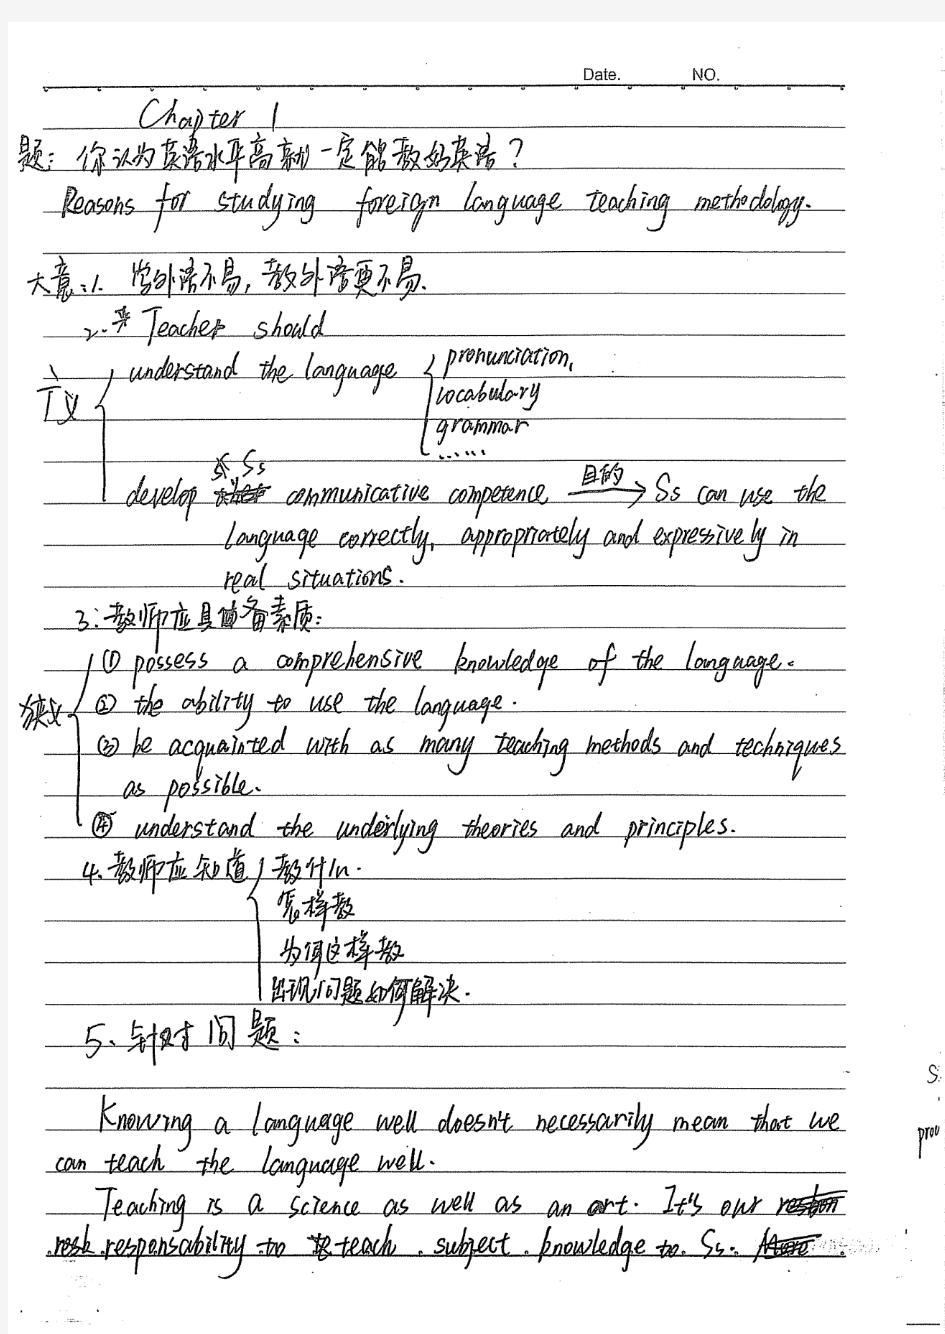 Date. NO.
Chapter 1
题：你认为英语水平高就一定能教好英语？
Reasons for studying foreign language teaching methodology.
大意：1. 学外语不易，教外语更不易.
2. Teacher should
understand the language pronunciation,
vocabulary
广义 grammar
......
Ss
develop communicative competence 目的 Ss can use the
language correctly, appropriately and expressively in
real situations.
3：教师应具备素质：
① possess a comprehensive knowledge of the language.
狭义 ② the ability to use the language.
③ be acquainted with as many teaching methods and techniques
as possible.
④ understand the underlying theories and principles.
4. 教师应知道 教什么.
怎样教
为何这样教
出现问题如何解决.
5、针对问题：
S.
Knowing a language well doesn't necessarily mean that we
prov
can teach the language well.
Teaching is a science as well as an art. It's our
responsability to teach subject knowledge to Ss.